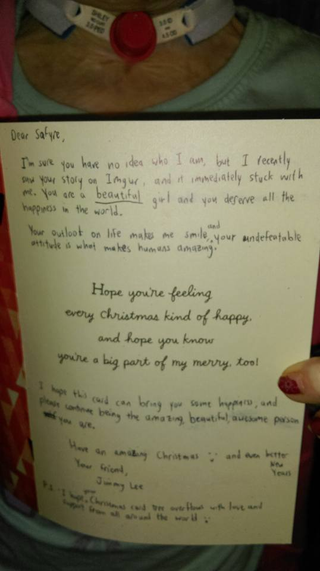 SHILEY
3.0 ID
Dear Safyre,
I'm sure you have no idea who I am, but I recently
saw your story on Imgur, and it immediately stuck with
me. You are a beautiful girl and you deserve all the
happiness in the world.
Your outlook on life makes me smile, and your undefeatable
attitude is what makes humans amazing.
Hope you're feeling
every Christmas kind of happy,
and hope you know
you're a big part of my merry, too!
I hope this card can bring you some happiness, and
please continue being the amazing, beautiful, awesome person
you are.
Have an amazing Christmas :) and even better
New
Years
Your friend,
Jimmy Lee
P.S. I hope your Christmas card tree overflows with love and
support from all around the world :)